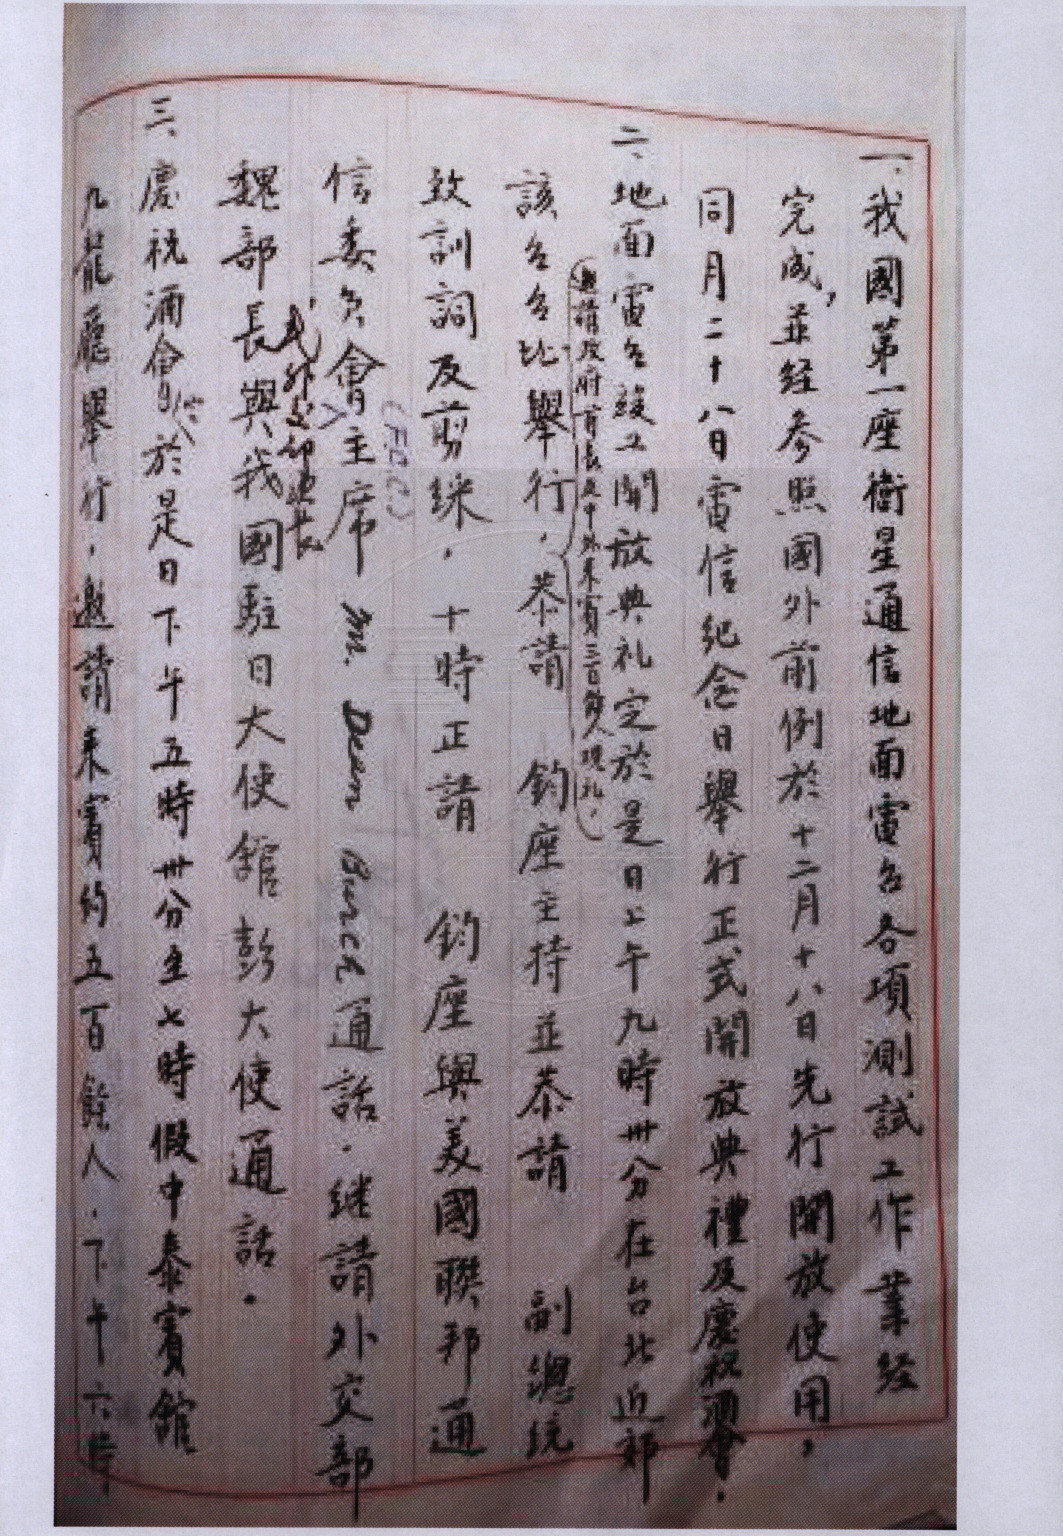 一、我國第一座衛星通信地面電台各項測試工作業經
完成，並經參照國外前例於十二月十八日先行開放使用，
同月二十八日電信紀念日舉行正式開放典禮及慶祝酒會．
二、地面電台竣工開放典礼定於是日上午九時卅分在台北近郊
邀請政府首長及中外來賓三百餘人觀礼，
該台台址舉行．恭請　鈞座主持並恭請　副總統
致訓詞及剪綵．十時正請　鈞座與美國聯邦通
(FCC)
信委員會主席 Mr. Dean Burch 通話．继請外交部
或外交部次長
魏部長與我國駐日大使館彭大使通話．
三、慶祝酒會於是日下午五時卅分至七時假中泰賓館
九龍廳舉行．邀請來賓約五百餘人．下午六時